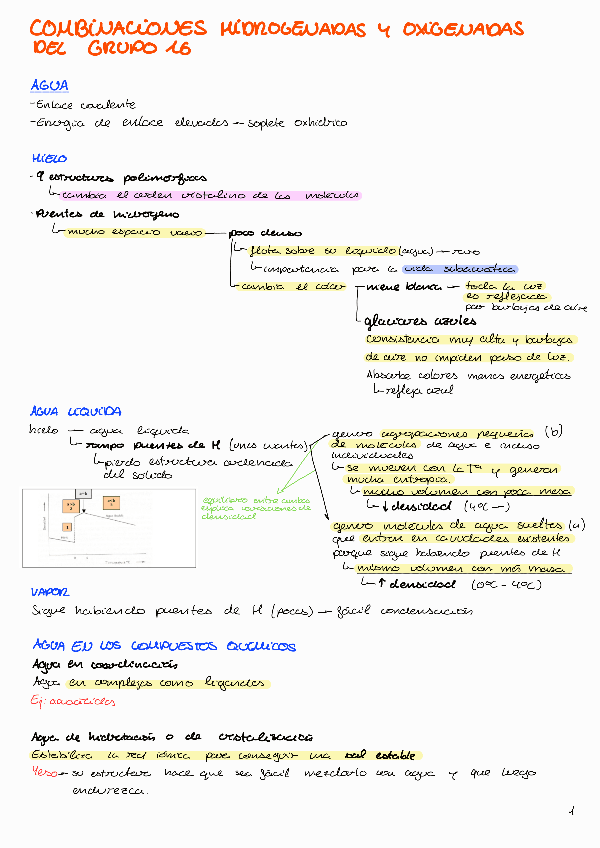 COMBINACIONES HIDROGENADAS Y OXIGENADAS
DEL GRUPO 16
AGUA
- Enlace covalente
- Energía de enlace elevada → soplete oxhídrico
HIELO
· 9 estructuras polimórficas
↳ cambia el orden cristalino de las moléculas
· Puentes de hidrógeno
↳ mucho espacio vacío — poco denso
↳ flota sobre su líquido (agua) — raro
↳ importancia para la vida subacuática
↳ cambia el color — nieve blanca — toda la luz
es reflejada
por burbujas de aire
glaciares azules
Consistencia muy alta y burbujas
de aire no impiden paso de luz.
Absorbe colores menos energéticos
↳ refleja azul
AGUA LÍQUIDA
hielo — agua líquida
↳ rompo puentes de H (unos cuantos)
↳ pierdo estructura ordenada
del sólido
genero agrupaciones pequeñas (b)
de moléculas de agua e incluso
individuales
↳ se mueven con la Tª y generan
mucha entropía.
↳ mucho volumen con poca masa
↳ ↓ densidad (4ºC →)
equilibrio entre ambos
explica variaciones de
densidad
genero moléculas de agua sueltas (a)
que entran en cavidades existentes
porque sigue habiendo puentes de H
↳ mismo volumen con más masa
↳ ↑ densidad (0ºC - 4ºC)
VAPOR
Sigue habiendo puentes de H (pocos) → fácil condensación
AGUA EN LOS COMPUESTOS QUÍMICOS
Agua en coordinación
Agua en complejos como ligandos
Ej: aquoácidos
Agua de hidratación o de cristalización
Estabiliza la red iónica para conseguir una sal estable
Yeso → su estructura hace que sea fácil mezclarlo con agua y que luego
endurezca.
1